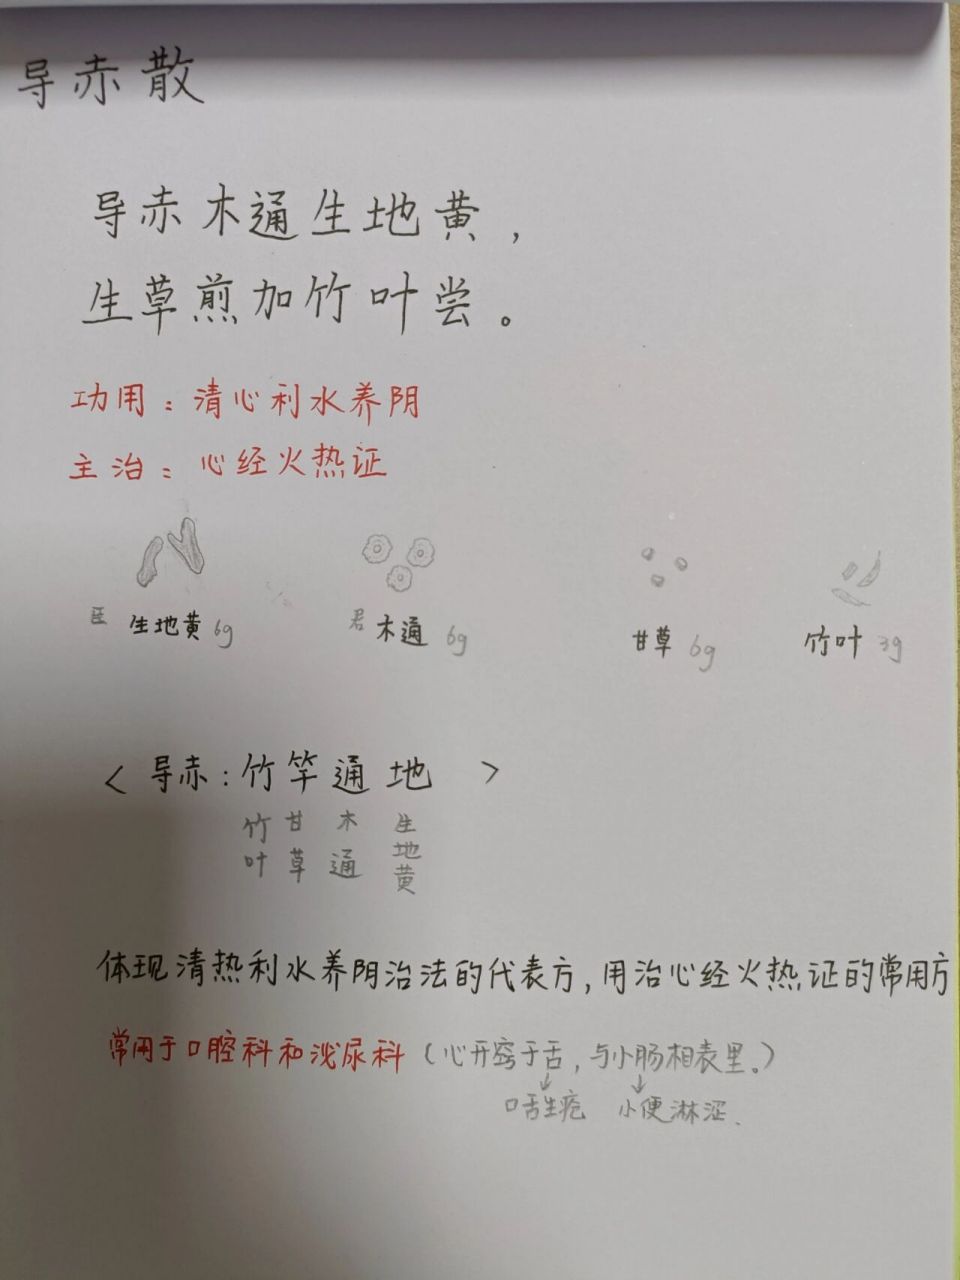 导赤散
导赤木通生地黄，
生草煎加竹叶尝。
功用：清心利水养阴
主治：心经火热证
臣 生地黄 6g 君 木通 6g 甘草 6g 竹叶 3g
＜导赤：竹竿通地＞
竹叶 甘草 木通 生地黄
体现清热利水养阴治法的代表方，用治心经火热证的常用方
常用于口腔科和泌尿科（心开窍于舌，与小肠相表里。）
↓ ↓
口舌生疮 小便淋涩.